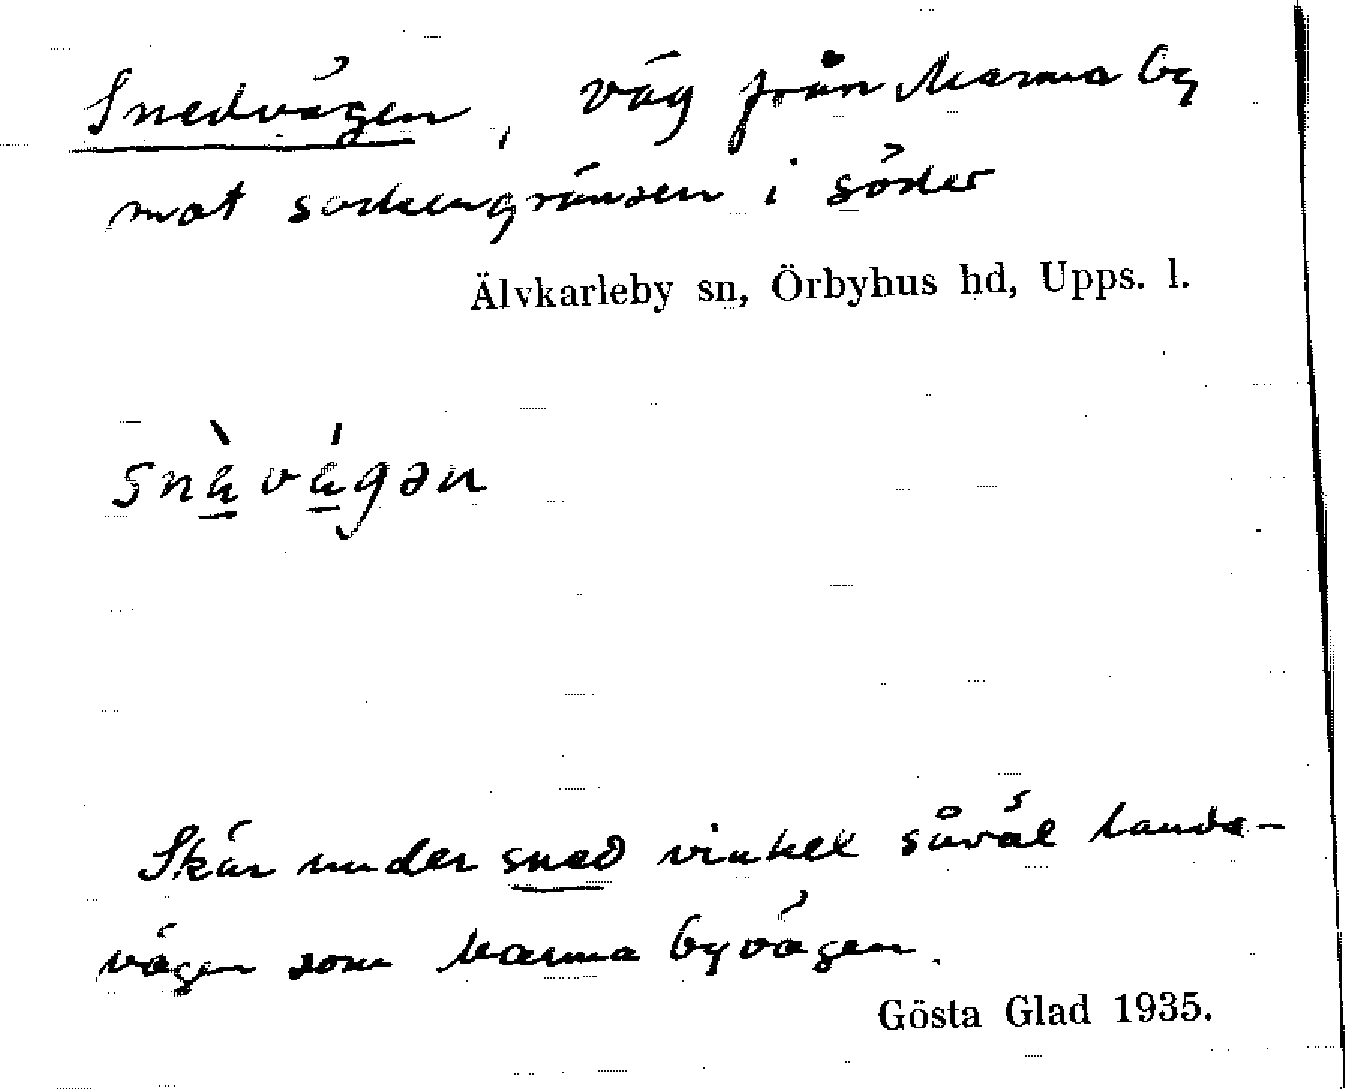 Snedvägen, väg från Marma by
mot sockengränsen i söder
Älvkarleby sn, Örbyhus hd, Upps. l.
snà̱vá̱gən
Skär under sned vinkel såväl lands-
vägen som Marma byvägen.
Gösta Glad 1935.